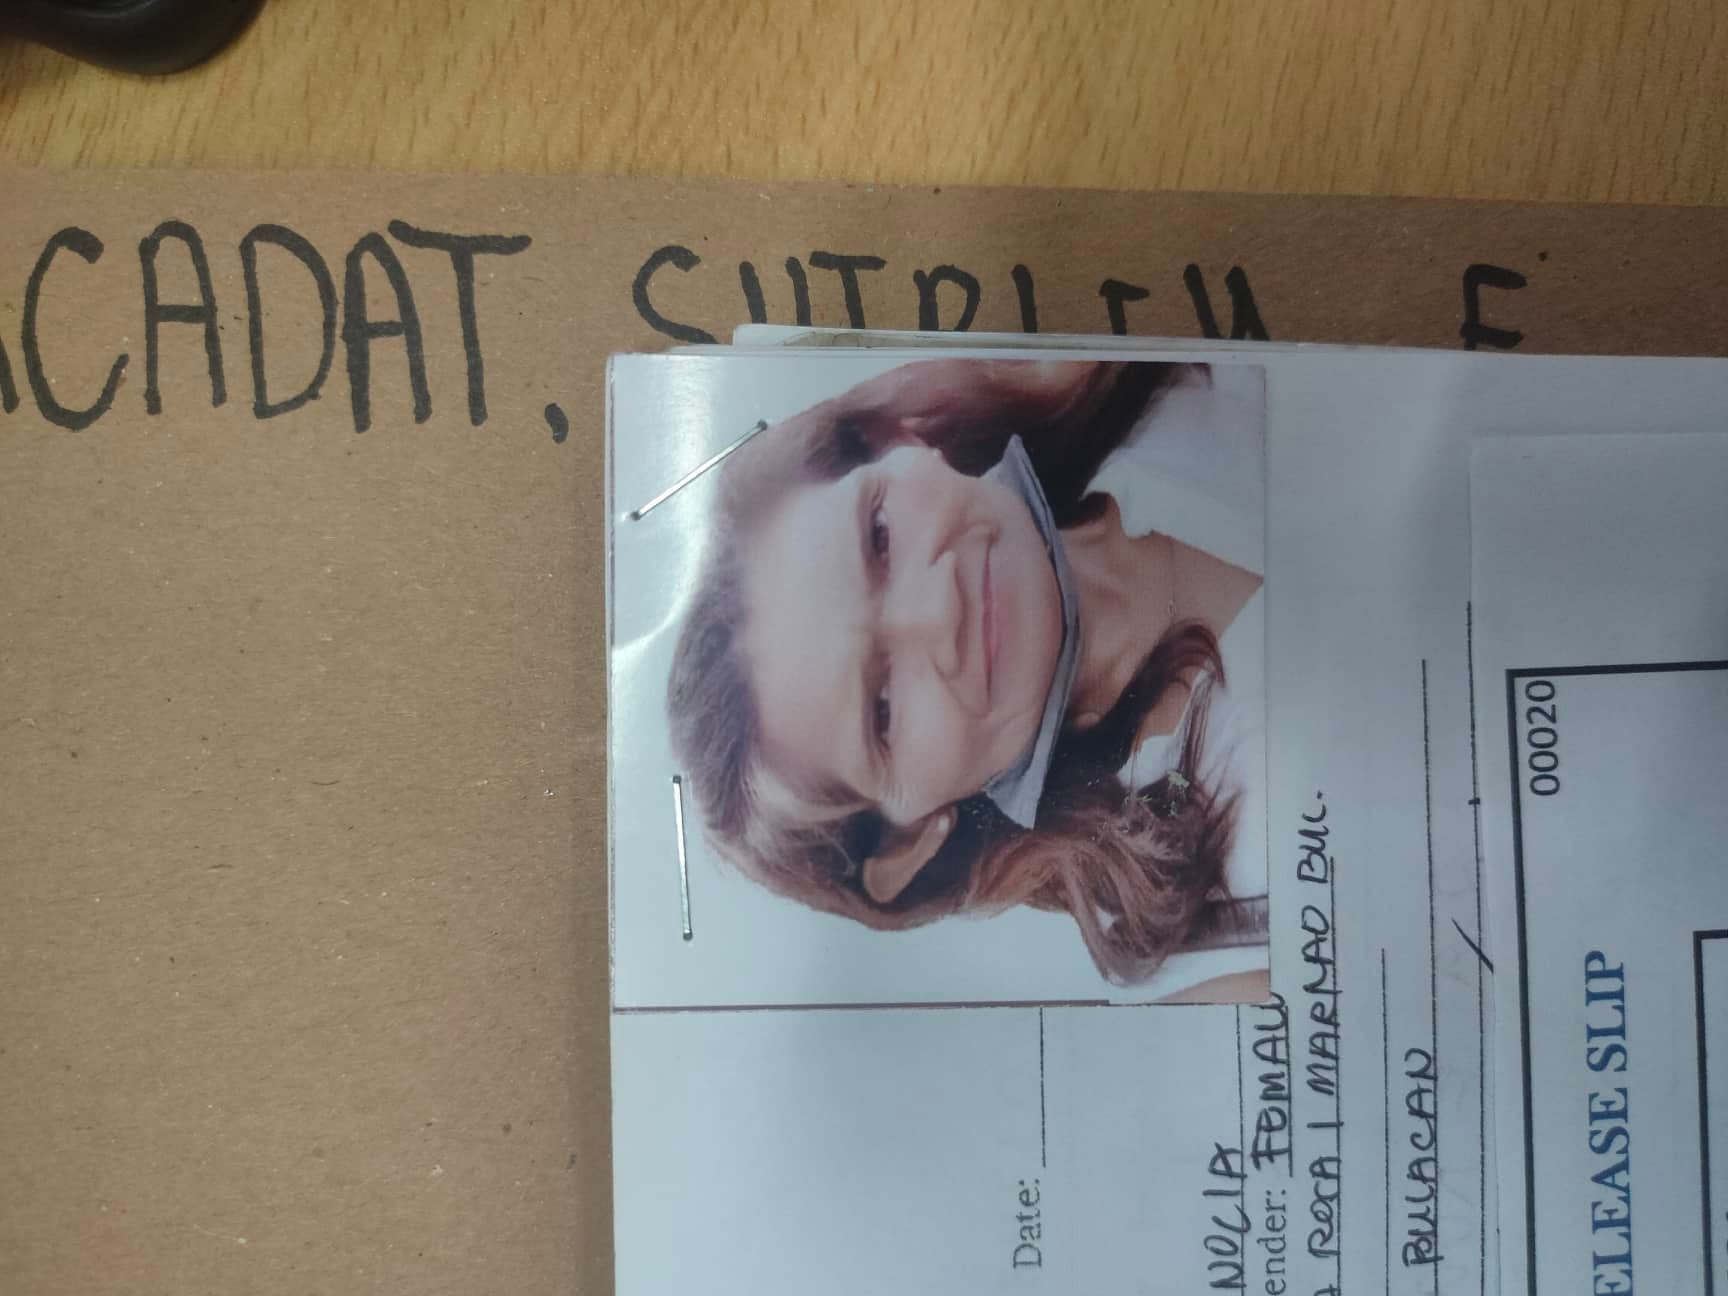 CADAT,
Date:
NOCIA
ender: FEMALE
ROCA 1 MARNAO BUL.
BULACAN
00020
ELEASE SLIP